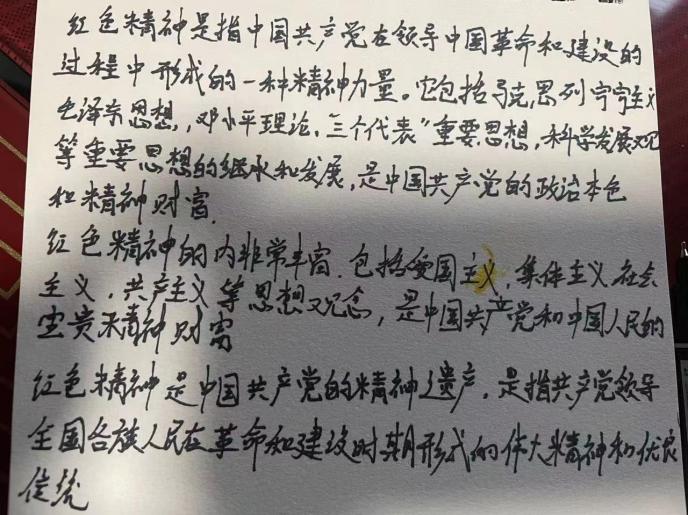 红色精神是指中国共产党在领导中国革命和建设的
过程中形成的一种精神力量。它包括马克思列宁主义
毛泽东思想，邓小平理论，三个代表”重要思想，科学发展观
等重要思想的继承和发展，是中国共产党的政治本色
和精神财富.
红色精神的内非常丰富.包括爱国主义，集体主义，社会
主义，共产主义等思想观念，是中国共产党和中国人民的
宝贵精神财富
红色精神是中国共产党的精神遗产，是指共产党领导
全国各族人民在革命和建设时期形成的伟大精神和优良
传统